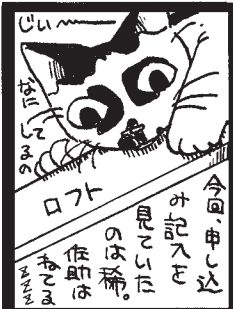 じぃ〜
なに
してるの
ロフト
今回、申し込
み記入を
見ていた
のは稀。
佐助は
ねてる
zzz